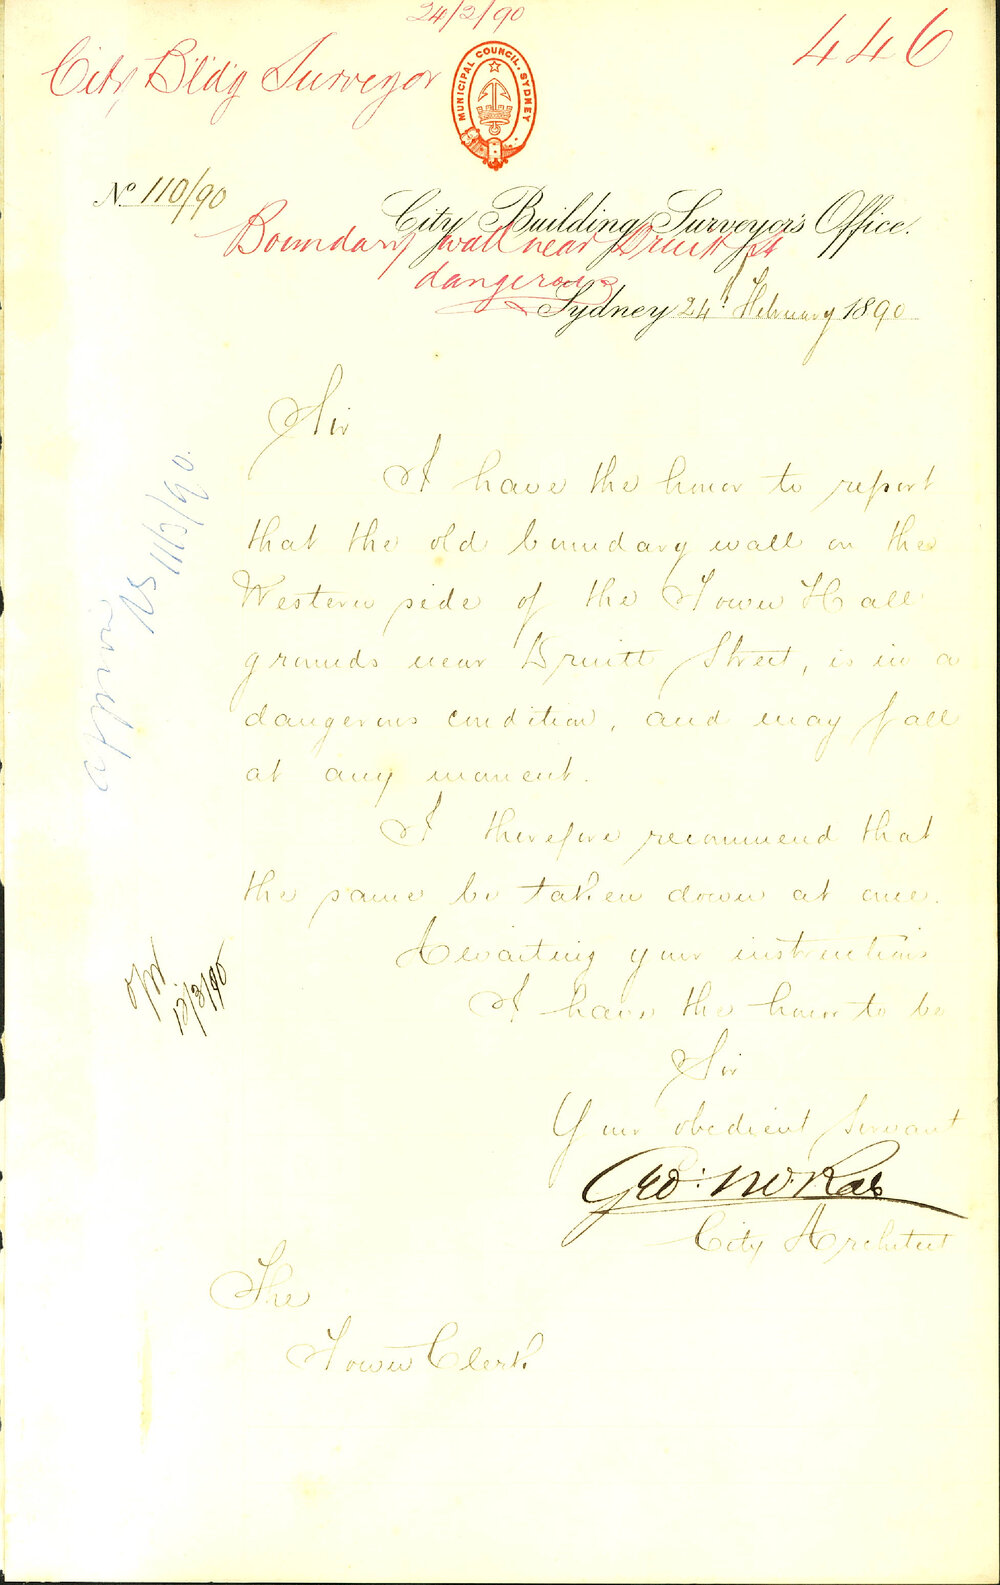 24/2/90
446
City Bldg Surveyor
MUNICIPAL COUNCIL. SYDNEY
No 110/90
City Building Surveyor's Office.
Boundary wall near Druitt St
dangerous
Sydney 24th February 1890
Sir
I have the honor to report
that the old boundary wall on the
Western side of the Town Hall
grounds near Druitt Street, is in a
dangerous condition, and may fall
at any moment.
I therefore recommend that
the same be taken down at once.
Awaiting your instructions
I have the honor to be
Sir
Your obedient Servant
Geo: McRae
City Architect
The
Town Clerk
11/3/90.
12/3/90